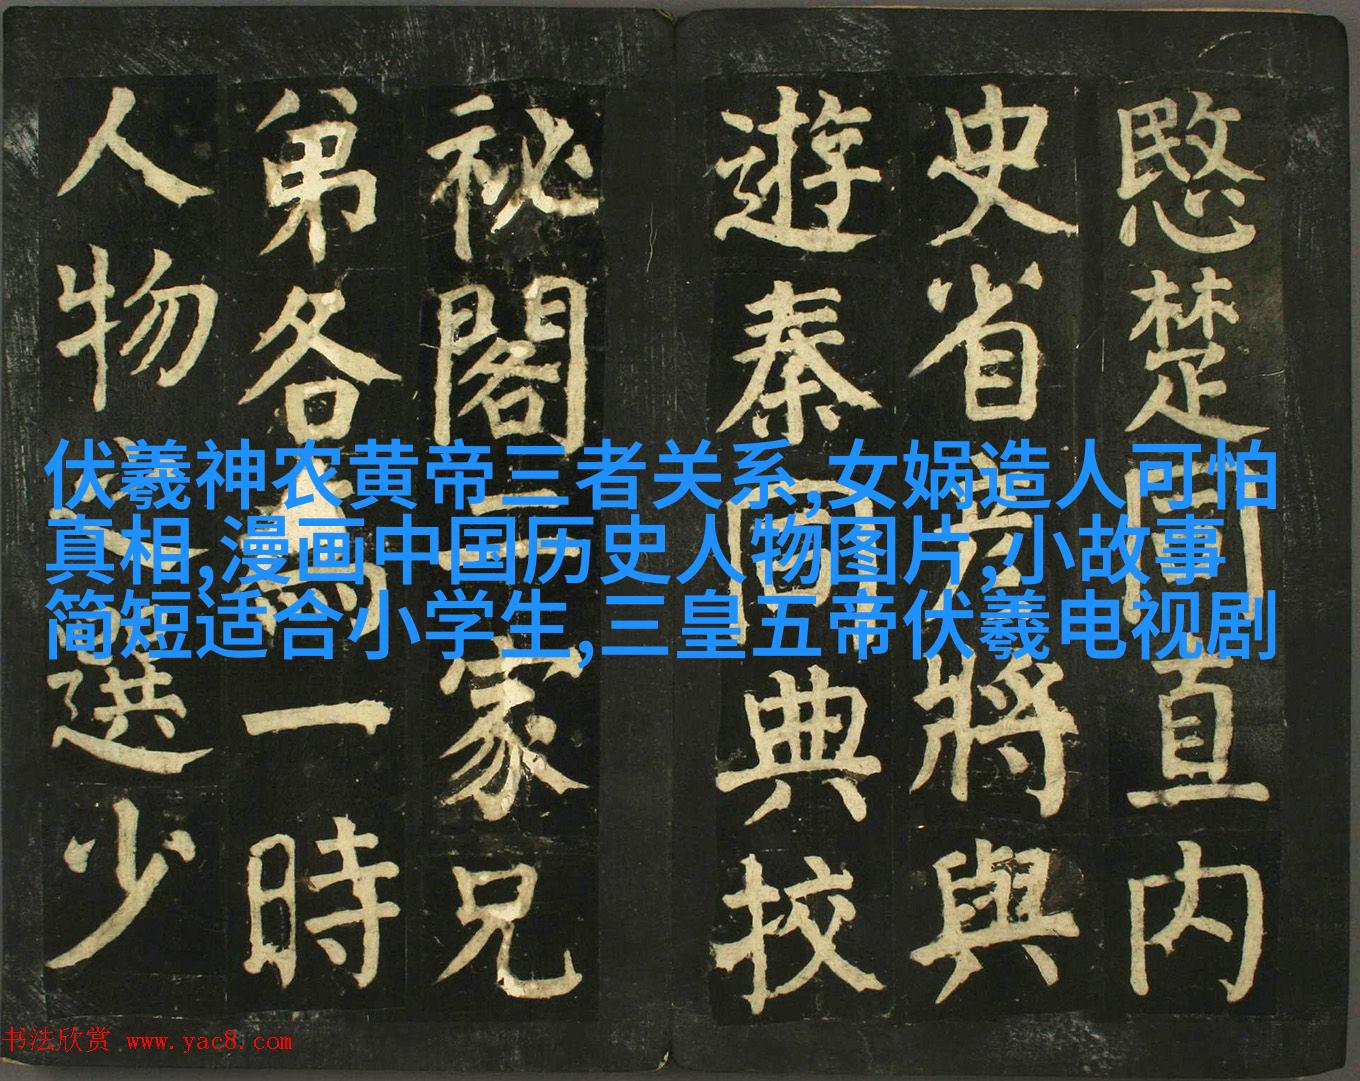 愍楚同直内
史省彦將與
遊秦同典校
祕閣二家兄
弟各為一時
人物之選少
伏羲神农黄帝三者关系,女娲造人可怕
真相,漫画中国历史人物图片,小故事
简短适合小学生,三皇五帝伏羲电视剧
书法欣赏 www.yac8.com